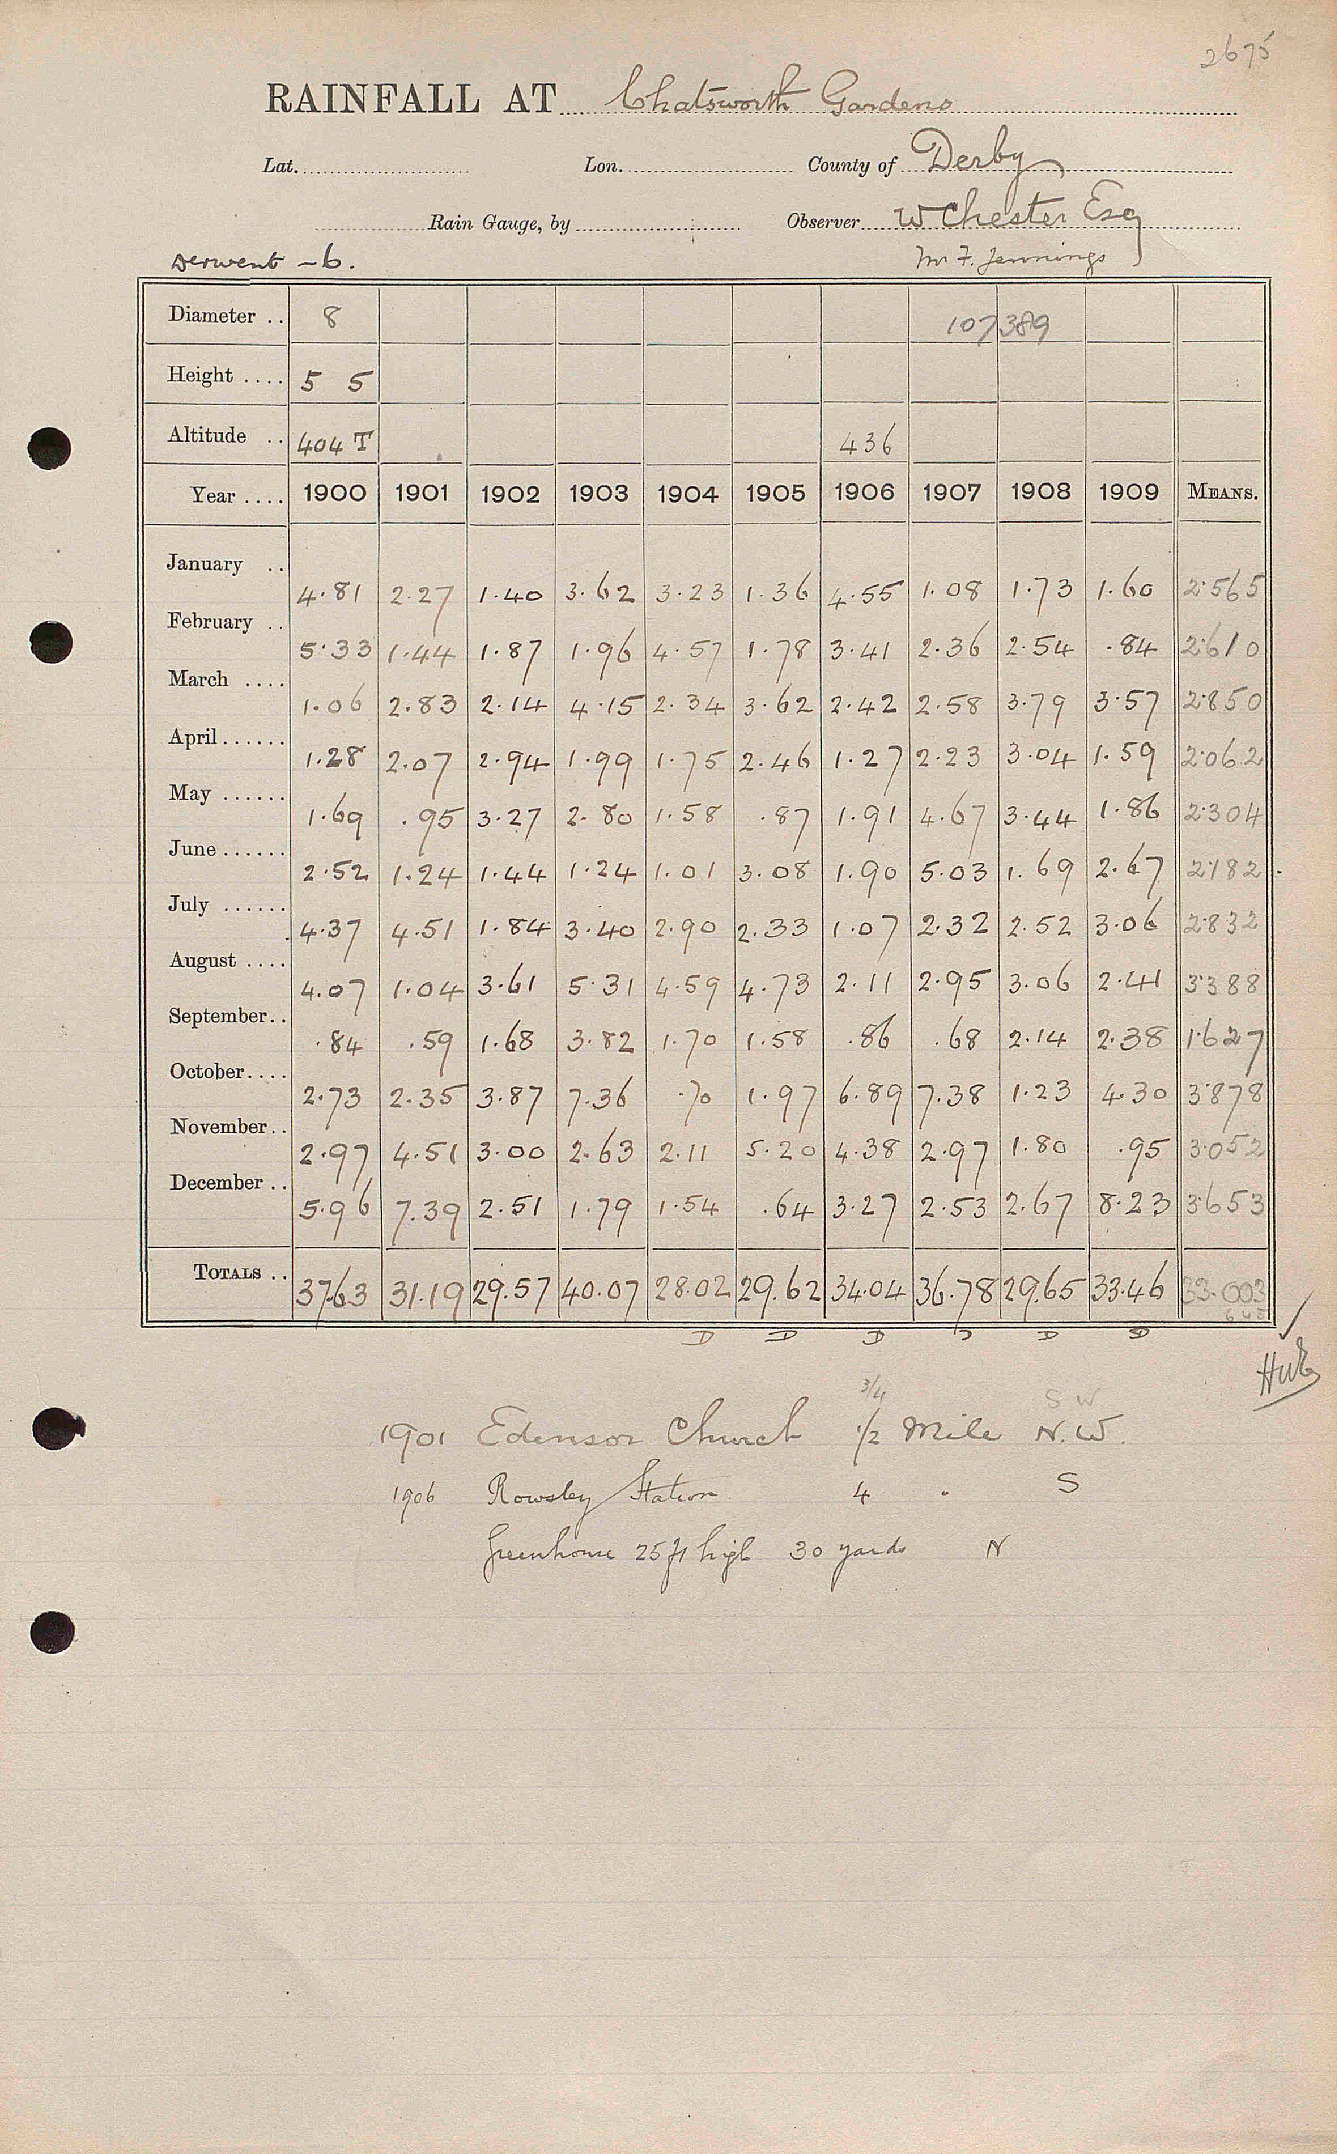 2675
RAINFALL AT Chatsworth Gardens
Lat. Lon. County of Derby
Rain Gauge, by Observer W Chester Esq
Derwent - 6. Mr F. Jennings
Diameter .. 8 107389
Height .... 5 5
Altitude .. 404 T 436
Year .... 1900 1901 1902 1903 1904 1905 1906 1907 1908 1909 MEANS.
January .. 4.81 2.27 1.40 3.62 3.23 1.36 4.55 1.08 1.73 1.60 2.565
February .. 5.33 1.44 1.87 1.96 4.57 1.78 3.41 2.36 2.54 .84 2.610
March .... 1.06 2.83 2.14 4.15 2.34 3.62 2.42 2.58 3.79 3.57 2.850
April ...... 1.28 2.07 2.94 1.99 1.75 2.46 1.27 2.23 3.04 1.59 2.062
May ...... 1.69 .95 3.27 2.80 1.58 .87 1.91 4.67 3.44 1.86 2.304
June ...... 2.52 1.24 1.44 1.24 1.01 3.08 1.90 5.03 1.69 2.67 2.182
July ...... 4.37 4.51 1.84 3.40 2.90 2.33 1.07 2.32 2.52 3.06 2.832
August .... 4.07 1.04 3.61 5.31 4.59 4.73 2.11 2.95 3.06 2.41 3.388
September .. .84 .59 1.68 3.82 1.70 1.58 .86 .68 2.14 2.38 1.627
October .... 2.73 2.35 3.87 7.36 .70 1.97 6.89 7.38 1.23 4.30 3.878
November .. 2.97 4.51 3.00 2.63 2.11 5.20 4.38 2.97 1.80 .95 3.052
December .. 5.96 7.39 2.51 1.79 1.54 .64 3.27 2.53 2.67 8.23 3.653
TOTALS .. 37.63 31.19 29.57 40.07 28.02 29.62 34.04 36.78 29.65 33.46 33.003
D D D D D D
3/4 S W
1901 Edensor Church 1/2 Mile N.W.
1906 Rowsley Station 4 " S
Greenhouse 25 ft high 30 yards N